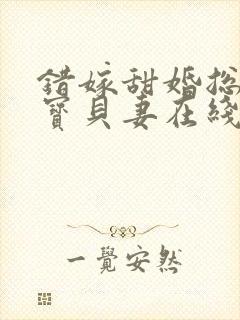 錯嫁甜婚總
寶貝妻在綫
一覺安然